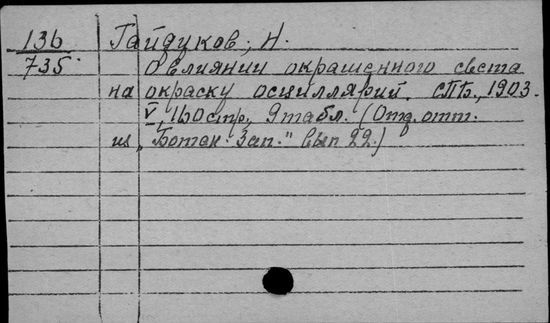 136 Гайдуков, Н.
735 О влиянии окрашенного света
на окраску осциллярий. СПБ., 1903.
V, 160 стр., 9 табл. (Отд. отт.
из „Ботан. Зап." Вып 22.)